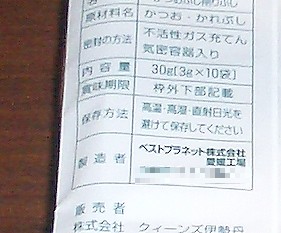 名 かつおぶし削りぶし
原材料名 かつお・かれぶし
密封の方法 不活性ガス充てん
気密容器入り
内容量 30g[3g×10袋]
賞味期限 枠外下部記載
保存方法 高温・高湿・直射日光を
避けて保存してください
製造者 ベストプラネット株式会社
愛媛工場
販売者
株式会社 クィーンズ伊勢丹